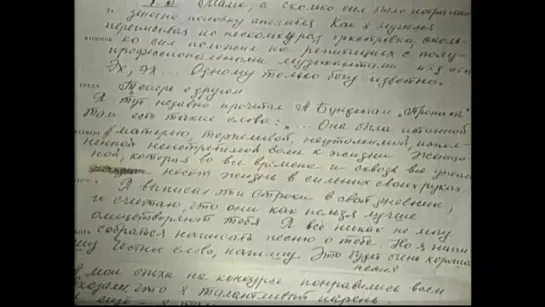 Мама, а сколько сил было потрачено
зачено поповку ансамбля. Как я мучился
переписывая по несколько раз оркестровки, сколь-
ВТОРНИК
ко сил положил на репетициях с полу-
профессиональными музыкантами
Эх, эх... Одному только богу известно.
СРЕДА
Теперь о другом
Я тут недавно прочитал А Бундестам „Тропою"
Там есть такие слова: „... Она была истинной
матерью, терпеливой, неутомимой, испол-
ненной неистребимой воли к жизни женщи-
ной, которая во все времена и сквозь все
носит жизнь в сильных своих руках.
Я выписал эти строки в свой дневник,
и считаю, что они как нельзя лучше
олицетворяют тебя Я всё никак не могу
собраться написать песню о тебе. Но я напи
шу честное слово, напишу. Это будет очень хорошая
песня
А мои стихи на конкурсе понравились всем
сказали, что я талантливый парень